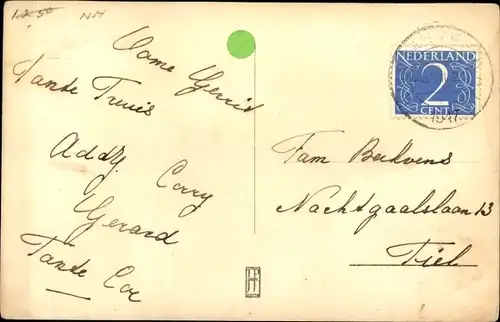 1.2.50 NH
Oome Gerrit
Tante Truus
Addy Corry
Gerard
Tante Cor
NEDERLAND
2
CENT
1947
Fam Berkvens
Nachtgaalslaan 13
Tiel